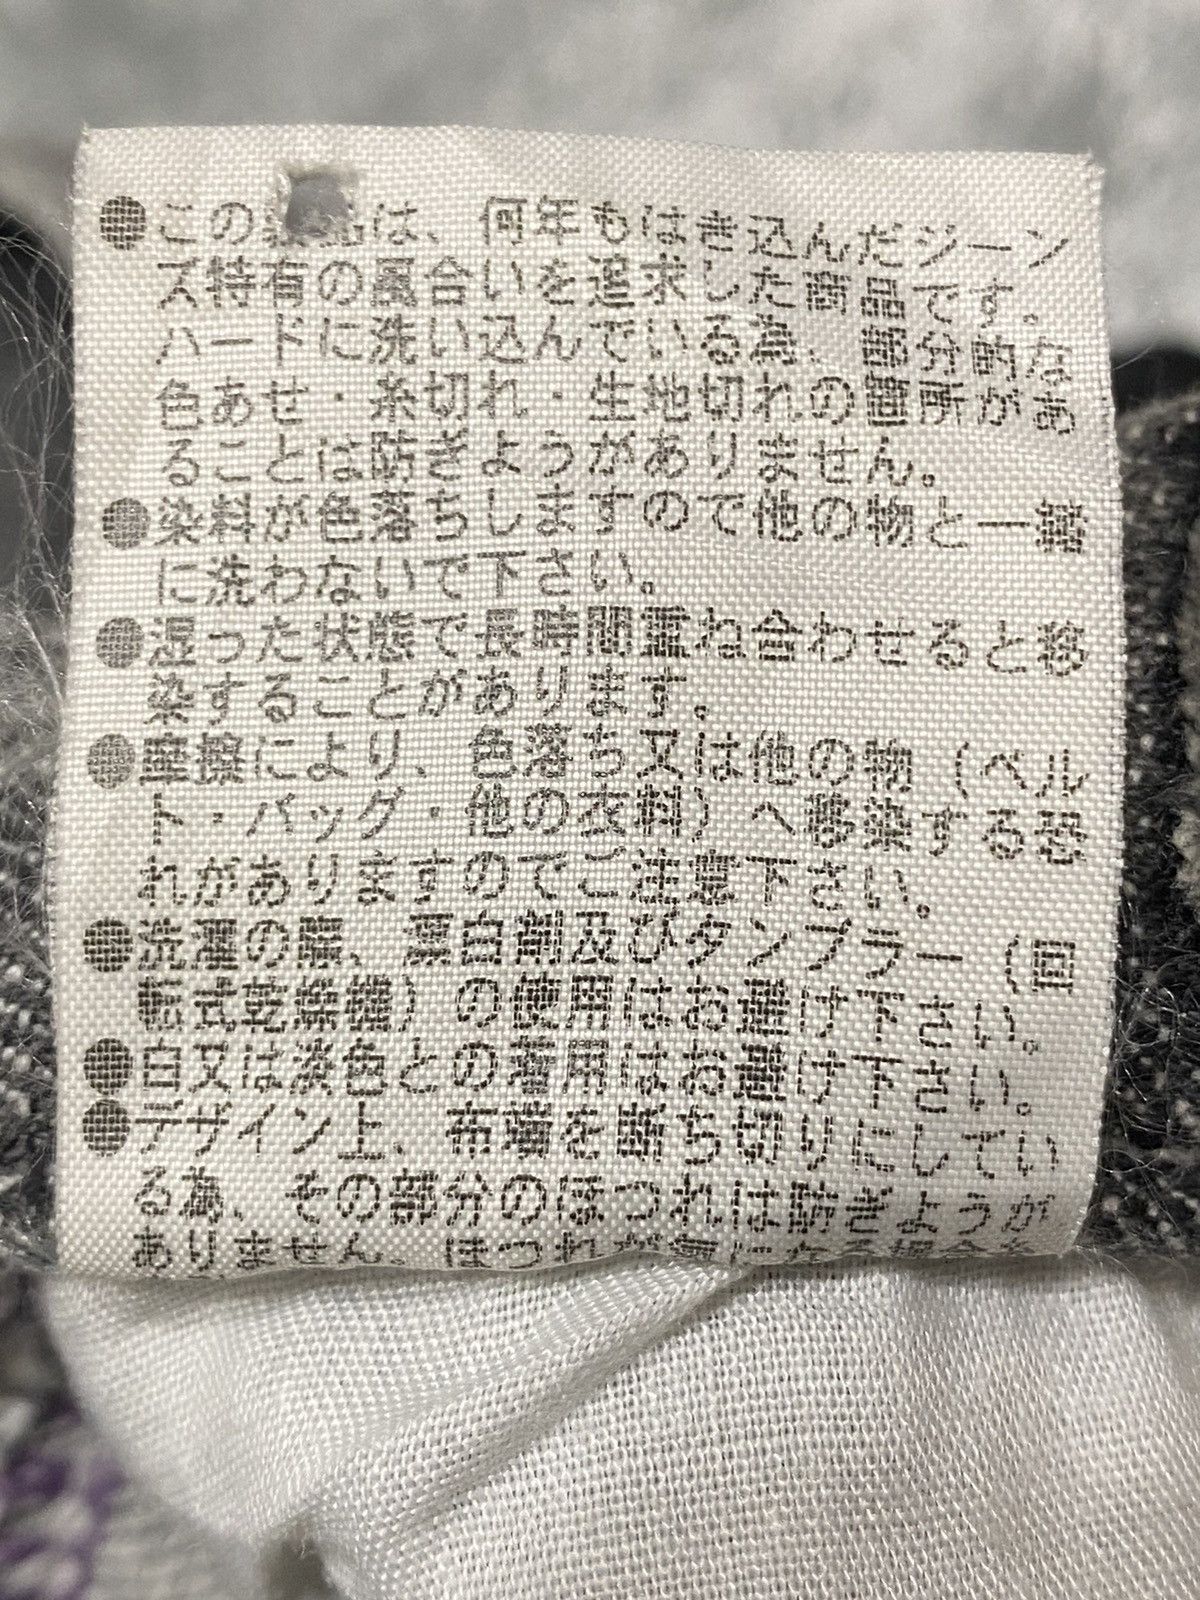 ●この製品は、何年もはき込んだジーン
ズ特有の風合いを追求した商品です。
ハードに洗い込んでいる為、部分的な
色あせ・糸切れ・生地切れの箇所があ
ることは防ぎようがありません。
●染料が色落ちしますので他の物と一緒
に洗わないで下さい。
●湿った状態で長時間重ね合わせると移
染することがあります。
●摩擦により、色落ち又は他の物（ベル
ト・バッグ・他の衣料）へ移染する恐
れがありますのでご注意下さい。
●洗濯の際、漂白剤及びタンブラー（回
転式乾燥機）の使用はお避け下さい。
●白又は淡色との着用はお避け下さい。
●デザイン上、布端を断ち切りにしてい
る為、その部分のほつれは防ぎようが
ありません。ほつれが気になる場合を